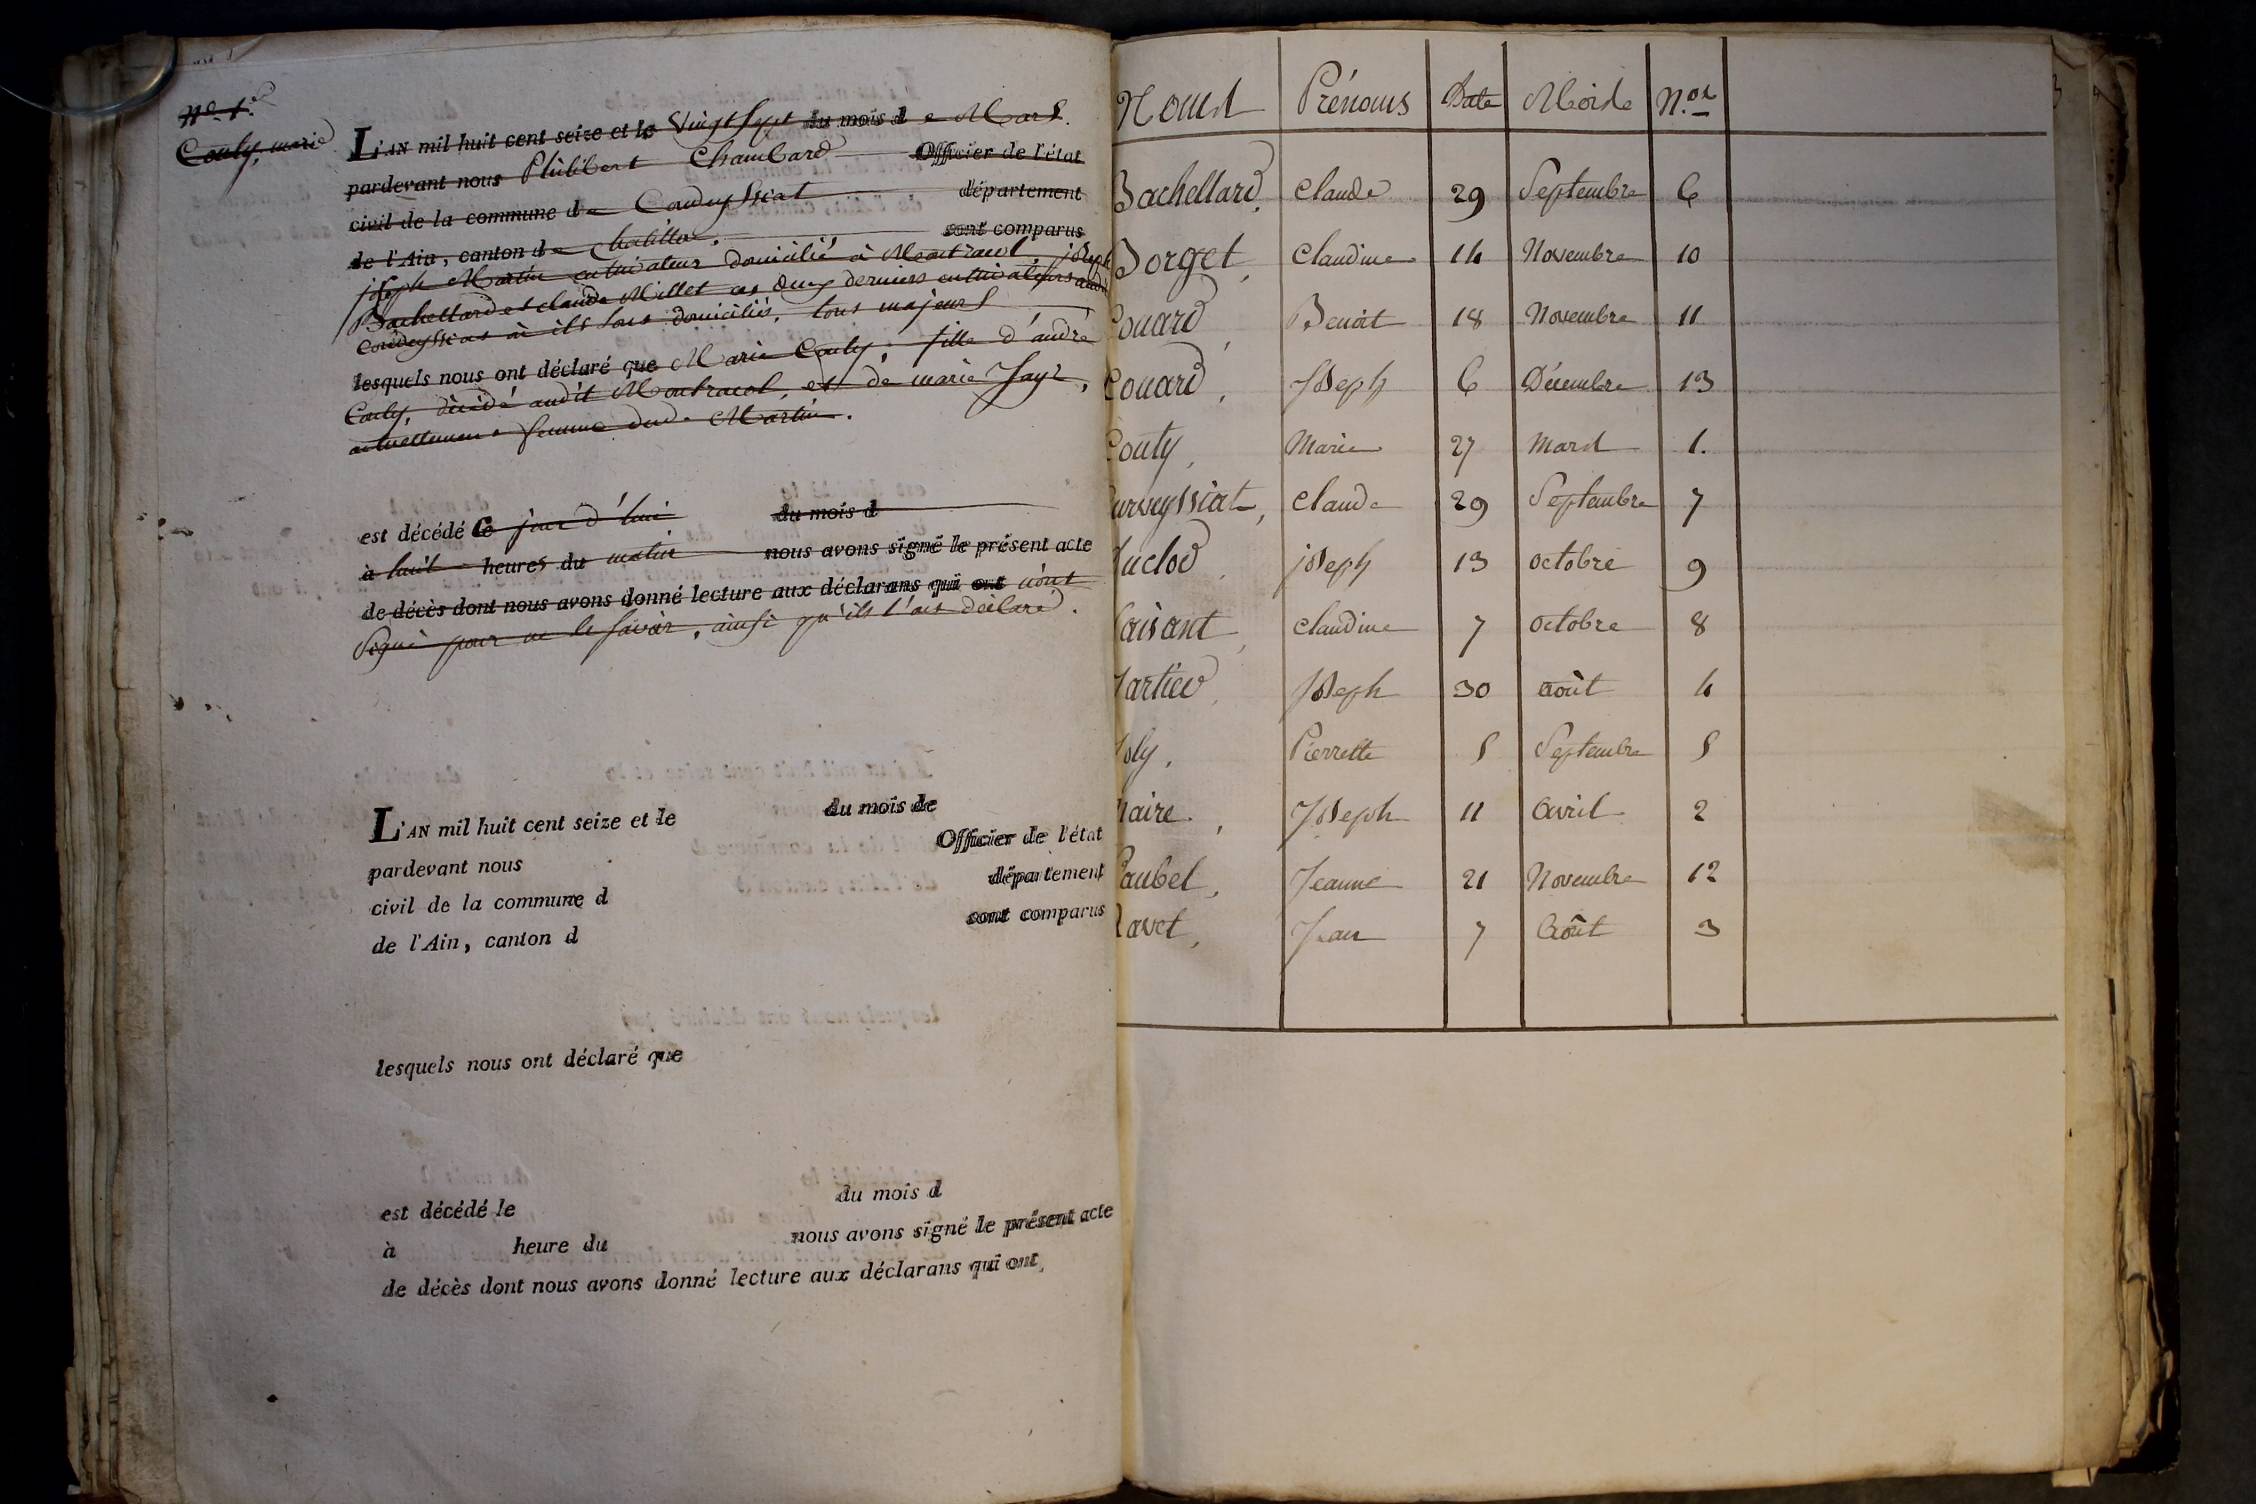 N.º 1.er
Couty, marie
L'AN mil huit cent seize et le Vingt Sept du mois de Mars.
pardevant nous Philibert Chambard Officier de l'état
civil de la commune de Condeyssiat département
de l'Ain, canton de Chatillon. sont comparus
joseph Martin cultivateur domicilié à Montracol, joseph
Bachellard et claude Millet ces deux derniers cultivateurs audit
Condeyssiat où ils sont domiciliés, tous majeurs
lesquels nous ont déclaré que Marie Couty, fille d'andré
Couty, décédé audit Montracol, et de marie Fayt,
actuellement femme dud. Martin.
est décédé Ce jour d'hui du mois d
à huit heures du matin nous avons signé le présent acte
de décès dont nous avons donné lecture aux déclarans qui ont n'ont
Signé pour ne le savoir, ainsi qu'ils l'ont déclaré.
L'AN mil huit cent seize et le du mois de
pardevant nous Officier de l'état
civil de la commune d département
de l'Ain, canton d sont comparus
lesquels nous ont déclaré que
est décédé le du mois d
à heure du nous avons signé le présent acte
de décès dont nous avons donné lecture aux déclarans qui ont
Noms Prénoms Date Mois N.os
Bachellard, Claude 29 Septembre 6
Borget, Claudine 14 Novembre 10
Couard, Benoit 18 Novembre 11
Couard, Joseph 6 Décembre 13
Couty, Marie 27 Mars 1.
Curveyssiat, Claude 29 Septembre 7
uclod, joseph 13 octobre 9
aisant, Claudine 7 octobre 8
artier, Joseph 30 août 4
oly, Pierrette 5 Septembre 5
aire, Joseph 11 Avril 2
aubel, Jeanne 21 Novembre 12
avet, Jean 7 Août 3